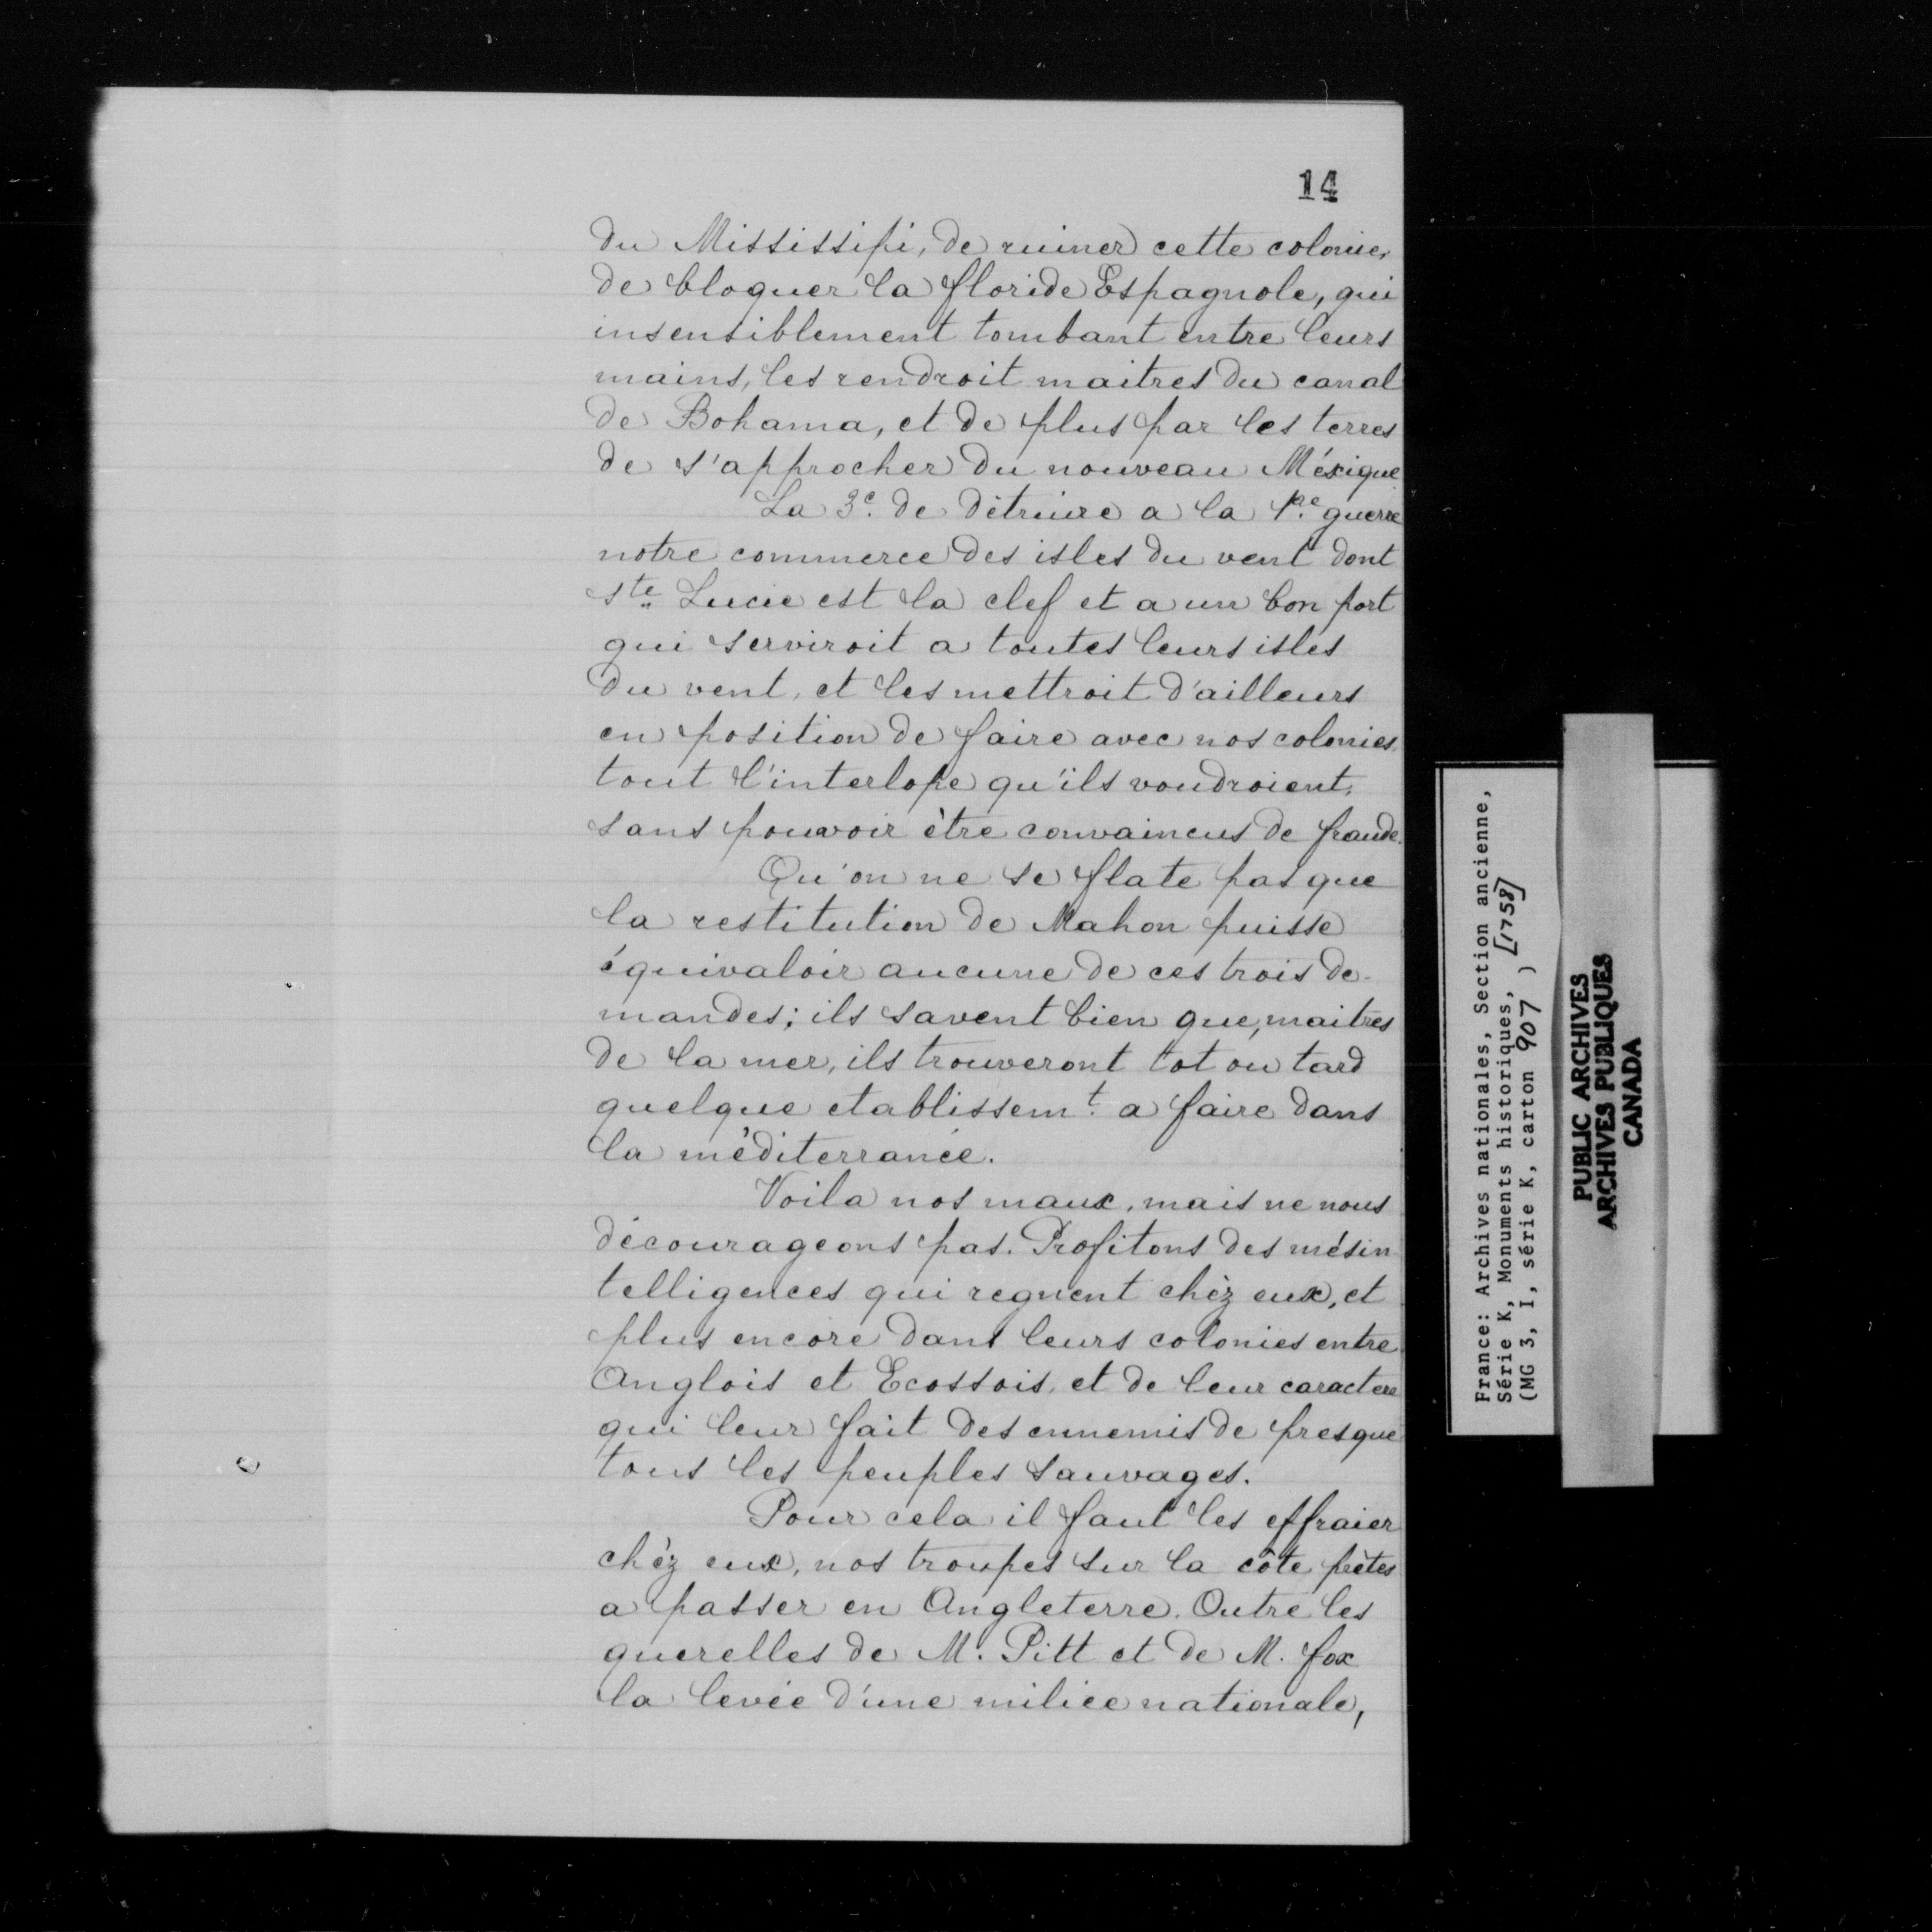 14
du Mississipi, de ruiner cette colonie,
de bloquer la floride Espagnole, qui
insensiblement tombant entre leurs
mains, les rendroit maitres du canal
de Bohama, et de plus par les terres
de s'approcher du nouveau Méxique
La 3e. de détruire a la 1re. guerre
notre commerce des isles du vent dont
ste. Lucie est la clef et a un bon port
qui serviroit a toutes leurs isles
du vent, et les mettroit d'ailleurs
en position de faire avec nos colonies
tout l'interlope qu'ils voudroient,
sans pouvoir être convaincus de fraude.
Qu'on ne se flate pas que
la restitution de Mahon puisse
équivaloir aucune de ces trois de-
mandes; ils savent bien que, maitres
de la mer, ils trouveront tot ou tard
quelque etablissemt. a faire dans
la méditerranée.
Voila nos maux, mais ne nous
décourageons pas. Profitons des mésin
telligences qui regnent chéz eux, et
plus encore dans leurs colonies entre
Anglois et Ecossois, et de leur caractere
qui leur fait des ennemis de presque
tous les peuples sauvages.
Pour cela il faut les effraier
chéz eux, nos troupes sur la côte prêtes
a passer en Angleterre. Outre les
querelles de M. Pitt et de M. fox
la levée d'une milice nationale,
France: Archives nationales, Section ancienne,
Série K, Monuments historiques, [1758]
(MG 3, I, série K, carton 907 )
PUBLIC ARCHIVES
ARCHIVES PUBLIQUES
CANADA